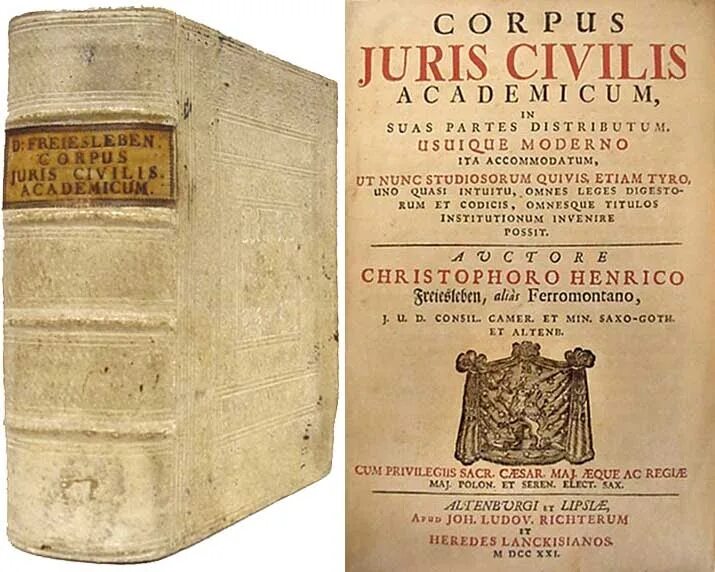 D: FREIESLEBEN.
CORPUS
JURIS CIVILIS.
ACADEMICUM.
CORPUS
JURIS CIVILIS
ACADEMICUM,
IN
SUAS PARTES DISTRIBUTUM.
USUIQUE MODERNO
ITA ACCOMMODATUM,
UT NUNC STUDIOSORUM QUIVIS, ETIAM TYRO,
UNO QUASI INTUITU, OMNES LEGES DIGESTO-
RUM ET CODICIS, OMNESQUE TITULOS
INSTITUTIONUM INVENIRE
POSSIT.
AVCTORE
CHRISTOPHORO HENRICO
Freiesleben, aliàs Ferromontano,
J. U. D. CONSIL. CAMER. ET MIN. SAXO-GOTH.
ET ALTENB.
CUM PRIVILEGIIS SACR. CÆSAR. MAJ. ÆQUE AC REGIÆ
MAJ. POLON. ET SEREN. ELECT. SAX.
ALTENBVRGI ET LIPSIÆ,
APUD JOH. LUDOV. RICHTERUM
ET
HEREDES LANCKISIANOS.
M DCC XXI.